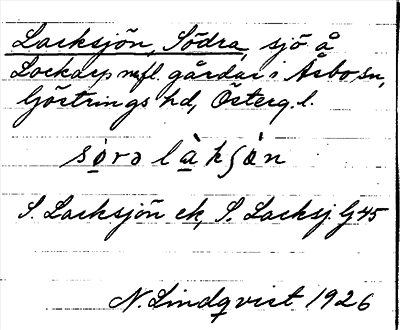 Lacksjön, Södra, sjö å
Lockarp m fl. gårdar i Åsbo sn,
Göstrings hd, Österg. l.
sørə làkʃøn
S. Lacksjön ek, S. Lacksj. G 45
N. Lindqvist 1926